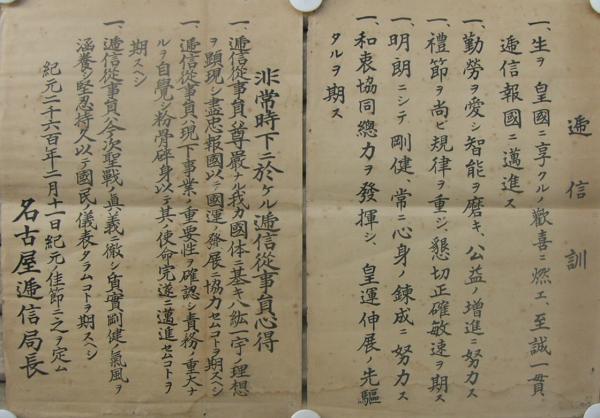 遞信訓
一、生ヲ 皇國ニ享クルノ歡喜ニ燃エ、至誠一貫、
遞信報國ニ邁進ス
一、勤勞ヲ愛シ智能ヲ磨キ、公益ノ增進ニ努力ス
一、禮節ヲ尚ビ規律ヲ重ジ、懇切正確敏速ヲ期ス
一、明朗ニシテ剛健、常ニ心身ノ鍊成ニ努力ス
一、和衷協同總力ヲ發揮シ、皇運伸展ノ先驅
タルヲ期ス
非常時下ニ於ケル遞信從事員心得
一、遞信從事員ハ尊嚴ナル我カ國体ニ基キ八紘一宇ノ理想
ヲ顯現シ盡忠報國以テ國運ノ發展ニ協力セムコトヲ期スヘシ
一、遞信從事員ハ現下事業ノ重要性ヲ確認シ責務ノ重大ナ
ルヲ自覺シ粉骨碎身以テ其ノ使命完遂ニ邁進セムコトヲ
期スヘシ
一、遞信從事員ハ今次聖戰ノ眞義ニ徹シ質實剛健ノ氣風ヲ
涵養シ堅忍持久以テ國民ノ儀表タラムコトヲ期スヘシ
紀元二千六百年二月十一日紀元ノ佳節ニ之ヲ定ム
名古屋遞信局長